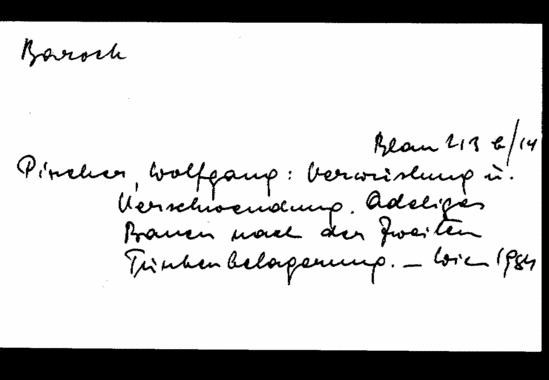 Barock
Blau 213 b/14
Pircher, Wolfgang: Verwüstung u.
Verschwendung. Adeliges
Bauen nach der Zweiten
Türkenbelagerung. – Wien 1984